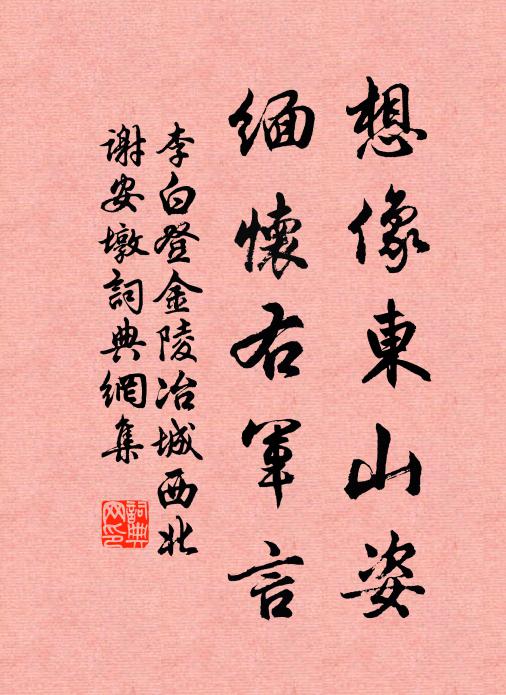 想像東山姿
緬懷右軍言
李白登金陵冶城西北
謝安墩詞典網集
詞典
网印